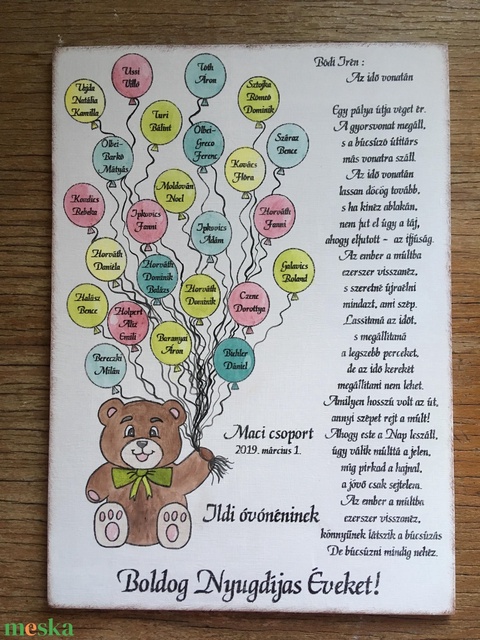 Ussi
Villő
Tóth
Áron
Vajda
Natália
Kamilla
Sztojka
Rómeó
Dominik
Turi
Bálint
Ölbei-
Barkó
Mátyás
Ölbei-
Greco
Ferenc
Száraz
Bence
Kovács
Flóra
Moldován
Noel
Kovács
Rebeka
Ipkovics
Fanni
Ipkovics
Ádám
Horváth
Fanni
Horváth
Daniéla
Horváth
Dominik
Balázs
Galavics
Roland
Halász
Bence
Horváth
Dominik
Czene
Dorottya
Holpert
Alíz
Emili
Baranyai
Áron
Bereczki
Milán
Büchler
Dániel
Maci csoport
2019. március 1.
Ildi óvónéninek
Bódi Irén :
Az idő vonatán
Egy pálya útja véget ér.
A gyorsvonat megáll,
s a búcsúzó útitárs
más vonatra száll.
Az idő vonatán
lassan döcög tovább,
s ha kinéz ablakán,
nem fut el úgy a táj,
ahogy elfutott - az ifjúság.
Az ember a múltba
ezerszer visszanéz,
s szeretné újraélni
mindazt, ami szép.
Lassítaná az időt,
s megállítaná
a legszebb perceket,
de az idő kerekét
megállítani nem lehet.
Amilyen hosszú volt az út,
annyi szépet rejt a múlt!
Ahogy este a Nap leszáll,
úgy válik múlttá a jelen,
míg pirkad a hajnal,
a jövő csak sejtelem.
Az ember a múltba
ezerszer visszanéz,
könnyűnek látszik a búcsúzás
De búcsúzni mindig nehéz.
Boldog Nyugdíjas Éveket!
meska